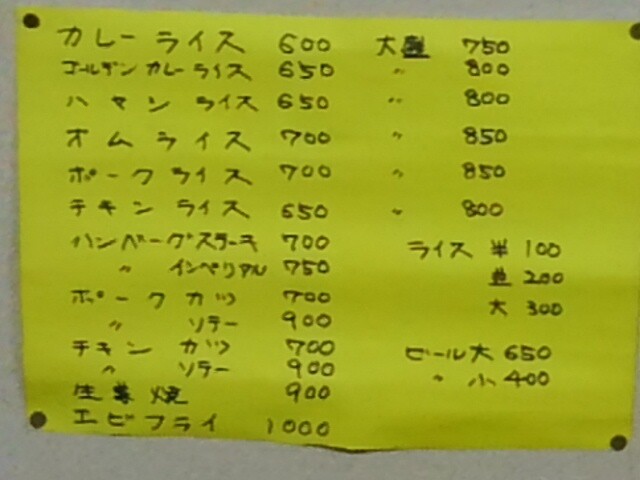 カレーライス 600 大盛 750
ゴールデンカレーライス 650 〃 800
ハヤシライス 650 〃 800
オムライス 700 〃 850
ポークライス 700 〃 850
チキンライス 650 〃 800
ハンバーグステーキ 700 ライス 半 100
〃 インペリアル 750 並 200
ポークカツ 700 大 300
〃 ソテー 900
チキンカツ 700 ビール大 650
〃 ソテー 900 〃 小 400
生姜焼 900
エビフライ 1000